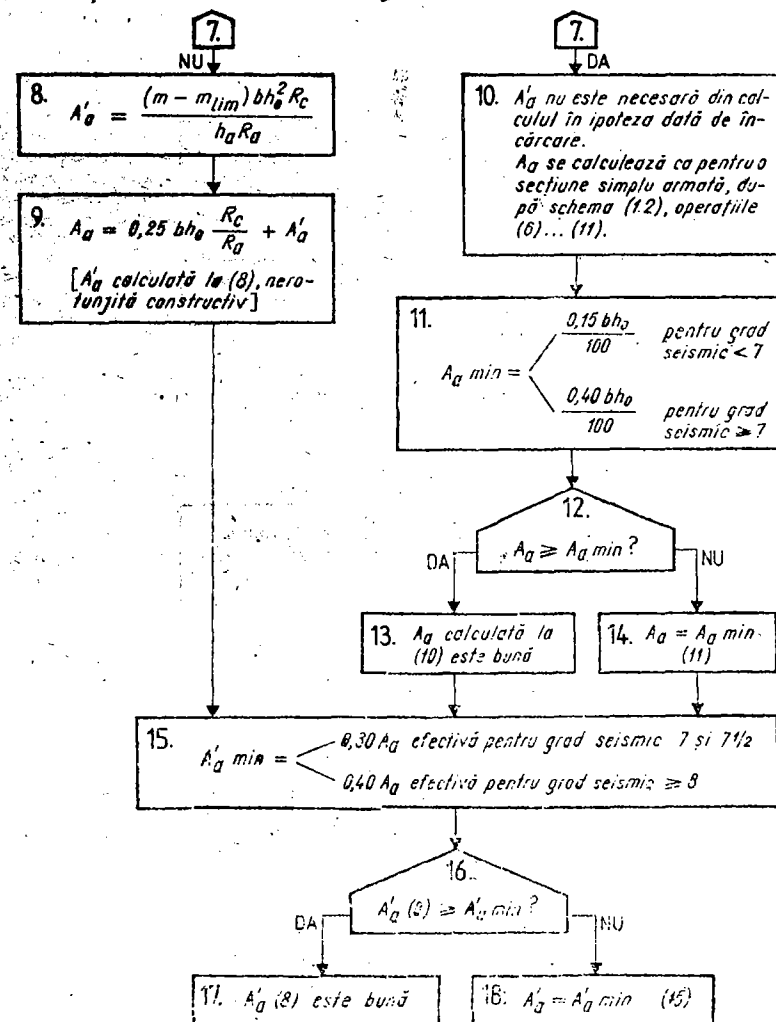 7.
NU
8. A'a = (m - mlim) bh₀² Rc / ha Ra
9. Aa = 0,25 bh₀ Rc / Ra + A'a
[A'a calculată la (8), nero-
tunjită constructiv]
7.
DA
10. A'a nu este necesară din cal-
culul în ipoteza dată de în-
cărcare.
Aa se calculează ca pentru o
secțiune simplu armată, du-
pă schema (1.2), operațiile
(6)... (11).
11. Aa min =
0,15 bh₀ / 100 pentru grad
seismic < 7
0,40 bh₀ / 100 pentru grad
seismic ≥ 7
12.
Aa ≥ Aa min ?
DA
NU
13. Aa calculată la
(10) este bună
14. Aa = Aa min
(11)
15. A'a min =
0,30 Aa efectivă pentru grad seismic 7 și 7 1/2
0,40 Aa efectivă pentru grad seismic ≥ 8
16.
A'a (8) ≥ A'a min ?
DA
NU
17. A'a (8) este bună
18. A'a = A'a min (15)